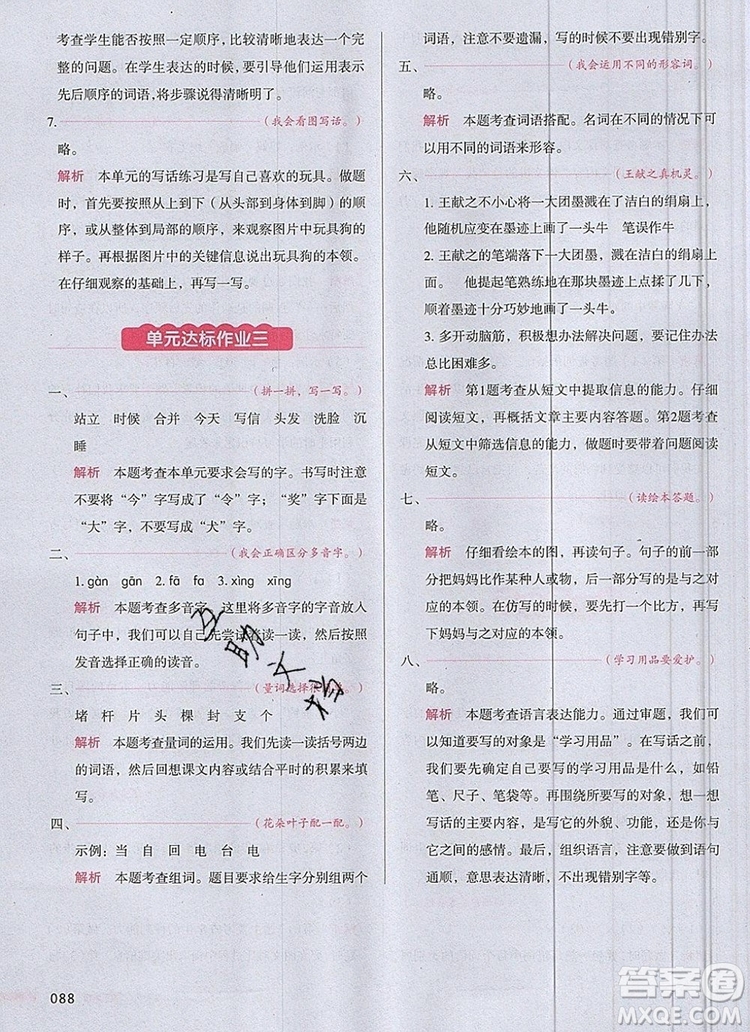 考查学生能否按照一定顺序，比较清晰地表达一个完
整的问题。在学生表达的时候，要引导他们运用表示
先后顺序的词语，将步骤说得清晰明了。
7.（我会看图写话。）
略。
解析 本单元的写话练习是写自己喜欢的玩具。做题
时，首先要按照从上到下（从头部到身体到脚）或从
前到后的顺序，来观察图片中的玩具狗，写出玩具狗的
样子。再根据图片中的关键信息说出玩具狗的本领。
在仔细观察的基础上，再写一写。
单元达标作业三
一、（拼一拼，写一写。）
站立 时候 合并 今天 写信 头发 洗脸 沉
睡
解析 本题考查本单元要求会写的字。书写时注意
不要将“今”字写成了“令”字；“奖”字下面是
“大”字，不要写成“犬”字。
二、（我会正确区分多音字。）
1. gàn gān 2. fā fà 3. xìng xīng
解析 本题考查多音字。这里将多音字的字音放入
句子中，我们可以自己先尝试着读一读，然后按照
发音选择正确的读音。
三、（量词选择
堵 杆 片 头 棵 封 支 个
解析 本题考查量词的运用。我们先读一读括号两边
的词语，然后回想课文内容或结合平时的积累来填一
填。
四、（花朵叶子配一配。）
示例：当 自 回 电 台 电
解析 本题考查组词。题目要求给生字分别组两个
词语，注意不要遗漏，写的时候不要出现错别字。
五、（我会运用不同的形容词。）
略。
解析 本题考查词语搭配。名词在不同的情况下可
以用不同的词语来形容。
六、（王献之真机灵。）
1. 王献之不小心将一大团墨溅在了洁白的绢扇上，
他随机应变在墨迹上画了一头牛 笔误作牛
2. 王献之的笔端落下一大团墨，溅在洁白的绢扇上
面 他提起笔熟练地在那块墨迹上画了画，只见
墨迹十分巧妙地变成了一头牛。
3. 多开动脑筋，积极想办法解决问题，办法总
总比困难多。
解析 第1题考查从短文中提取信息的能力。仔细
阅读短文，再概括文章主要内容答题。第2题考查
从短文中筛选信息的能力，做题时要带着问题阅读
短文。
七、（读绘本答题。）
略。
解析 仔细看绘本的图，再读句子。句子的前面都
把妈妈比作某种人、或物，后面是与前面的人或物
相对应的本领。在仿写的时候，要写出一个比喻，写
下妈妈与之对应的本领。
八、（学习用品要爱护。）
略。
解析 本题考查语言表达能力。通过审题，我们可
以知道要写的对象是“学习用品”，那么首先可以
先确定自己要写的学习用品是什么，如铅
笔、尺子、笔袋等。再围绕所要写的内容，想一想要
写话的对象是什么，写它的外貌、功能，还可以写你与
它之间的感情。最后，组织语言，注意写话时语句
通顺，意思表达清晰，不出现错别字等。
088
互助文档
答案圈
MXQE.COM